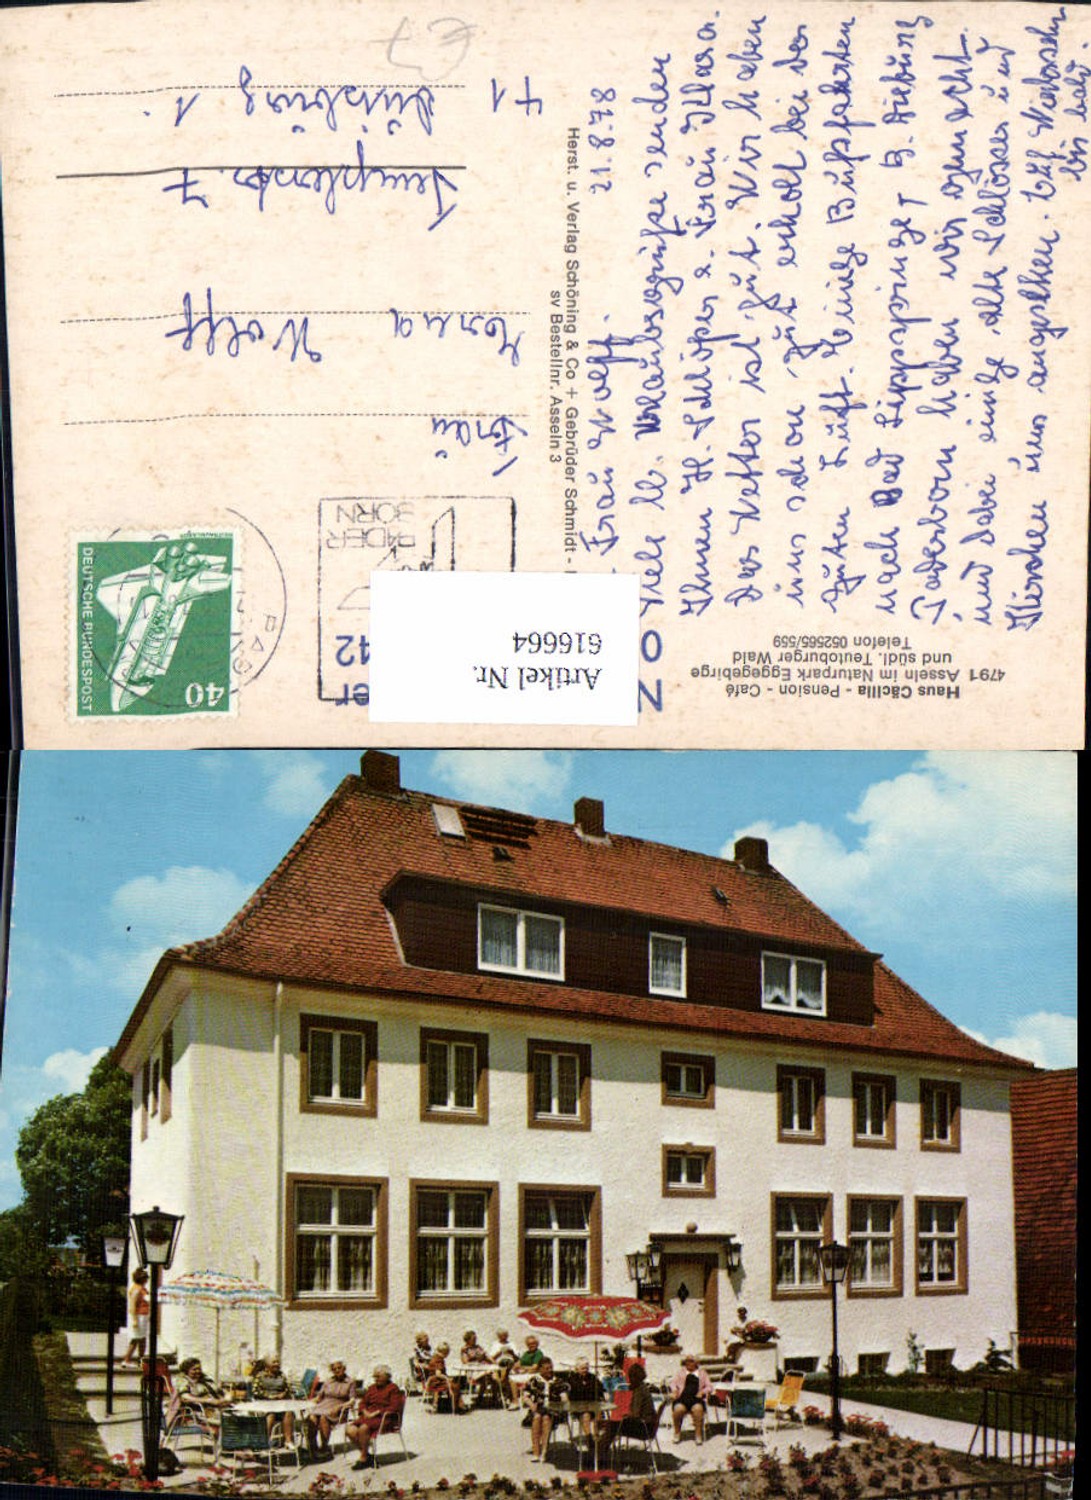 Haus Cäcilia - Pension - Café
4791 Asseln im Naturpark Eggegebirge
und südl. Teutoburger Wald
Telefon 052565/559
21.8.78
Frau Wolff.
Viele lb. Urlaubsgrüße senden
Ihnen H. Schlöper u. Frau Klara.
Das Wetter ist gut. Wir haben
uns schon gut erholt bei der
guten Luft. Einige Busfahrten
nach Bad Lippspringe,
Paderborn haben wir gemacht.
und dabei einige alte Schlösser und
Kirchen uns angesehen. Auf Wiedersehn
bis bald.
Herst. u. Verlag Schöning & Co + Gebrüder Schmidt -
sv Bestellnr. Asseln 3
Artikel Nr.
616664
DEUTSCHE BUNDESPOST
40
PADER
BORN
PAD
Frau
Wolff
Templerstr. 7
41
Duisburg 1
€7